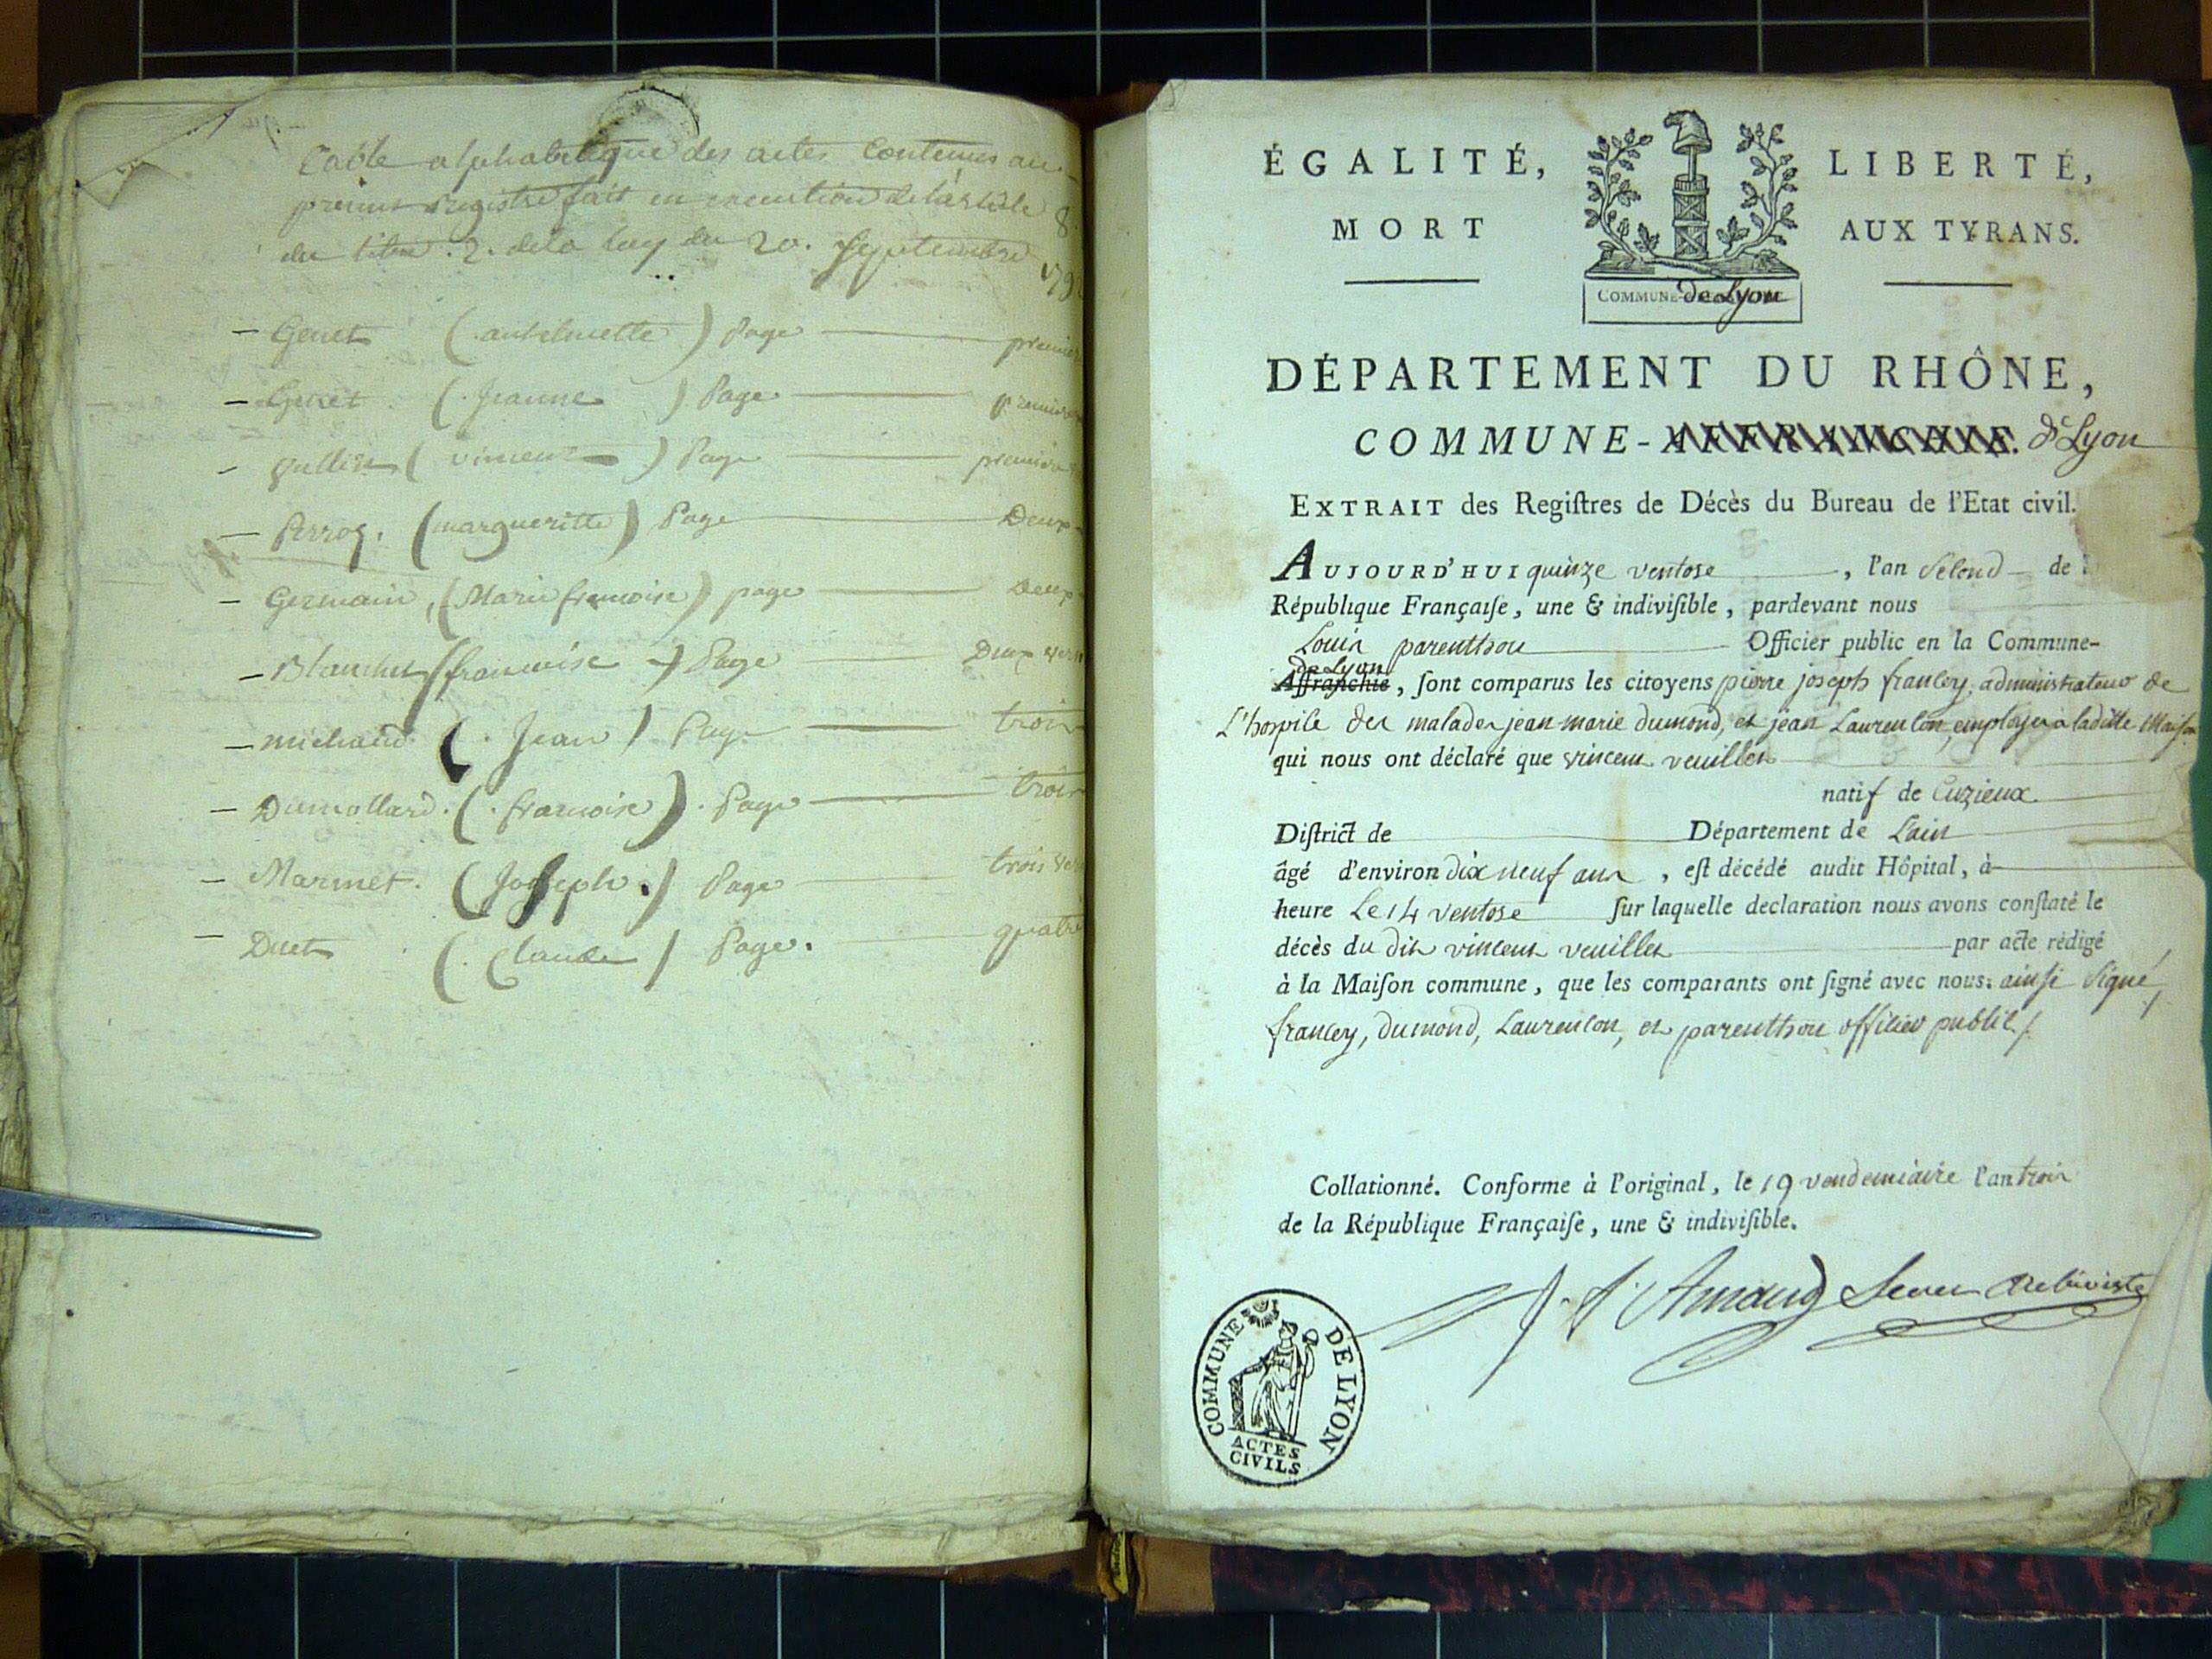 Table alphabetique des actes Contenus au
premier registre fait en execution de l'article 8
du titre .2. de la loy du 20. Septembre
1792
– Genet (. anthelmette ) Page premier
– Genet . (. Jeanne ) Page premier
– Vullin ( vincent ) Page premier
– Perroz . (margueritte) Page Deux
– Germain , (Marie francoise) page Deux
– Blanchet (francoise ) Page Deux
– michaud (. Jean ) Page trois
– Dumollard . (. francoise ) . Page trois
– Marmet . (Joseph .) Page trois
– Duet . (. Claude ) Page . quatre
ÉGALITÉ, LIBERTÉ,
MORT AUX TYRANS.
COMMUNE- de Lyon
DÉPARTEMENT DU RHÔNE,
COMMUNE-AFFRANCHIE. de Lyon
EXTRAIT des Regiſtres de Décès du Bureau de l'Etat civil.
AUJOURD'HUI quinze ventose , l'an second de
République Françaiſe, une & indiviſible, pardevant nous
Louis parenthou Officier public en la Commune-
de Lyon
Affranchie, ſont comparus les citoyens pierre joseph francey, administrateur de
L'hospice des malades jean marie dumond, et jean Laurenson, employes a ladite Maison
qui nous ont déclaré que vincent veuillet
natif de Cuzieux
Diſtrict de Département de L'ain
âgé d'environ dix neuf ans , eſt décédé audit Hôpital, à
heure Le 14 ventose ſur laquelle declaration nous avons conſtaté le
décès du dit vincent veuillet par acte rédigé
à la Maiſon commune, que les comparants ont ſigné avec nous: ainsi signé,
francey, dumond, Laurenson, et parenthou officier public ./.
Collationné. Conforme à l'original, le 19 vendemiaire l'an trois
de la République Françaiſe, une & indiviſible.
Arnaud Archiviste
COMMUNE DE LYON
ACTES
CIVILS